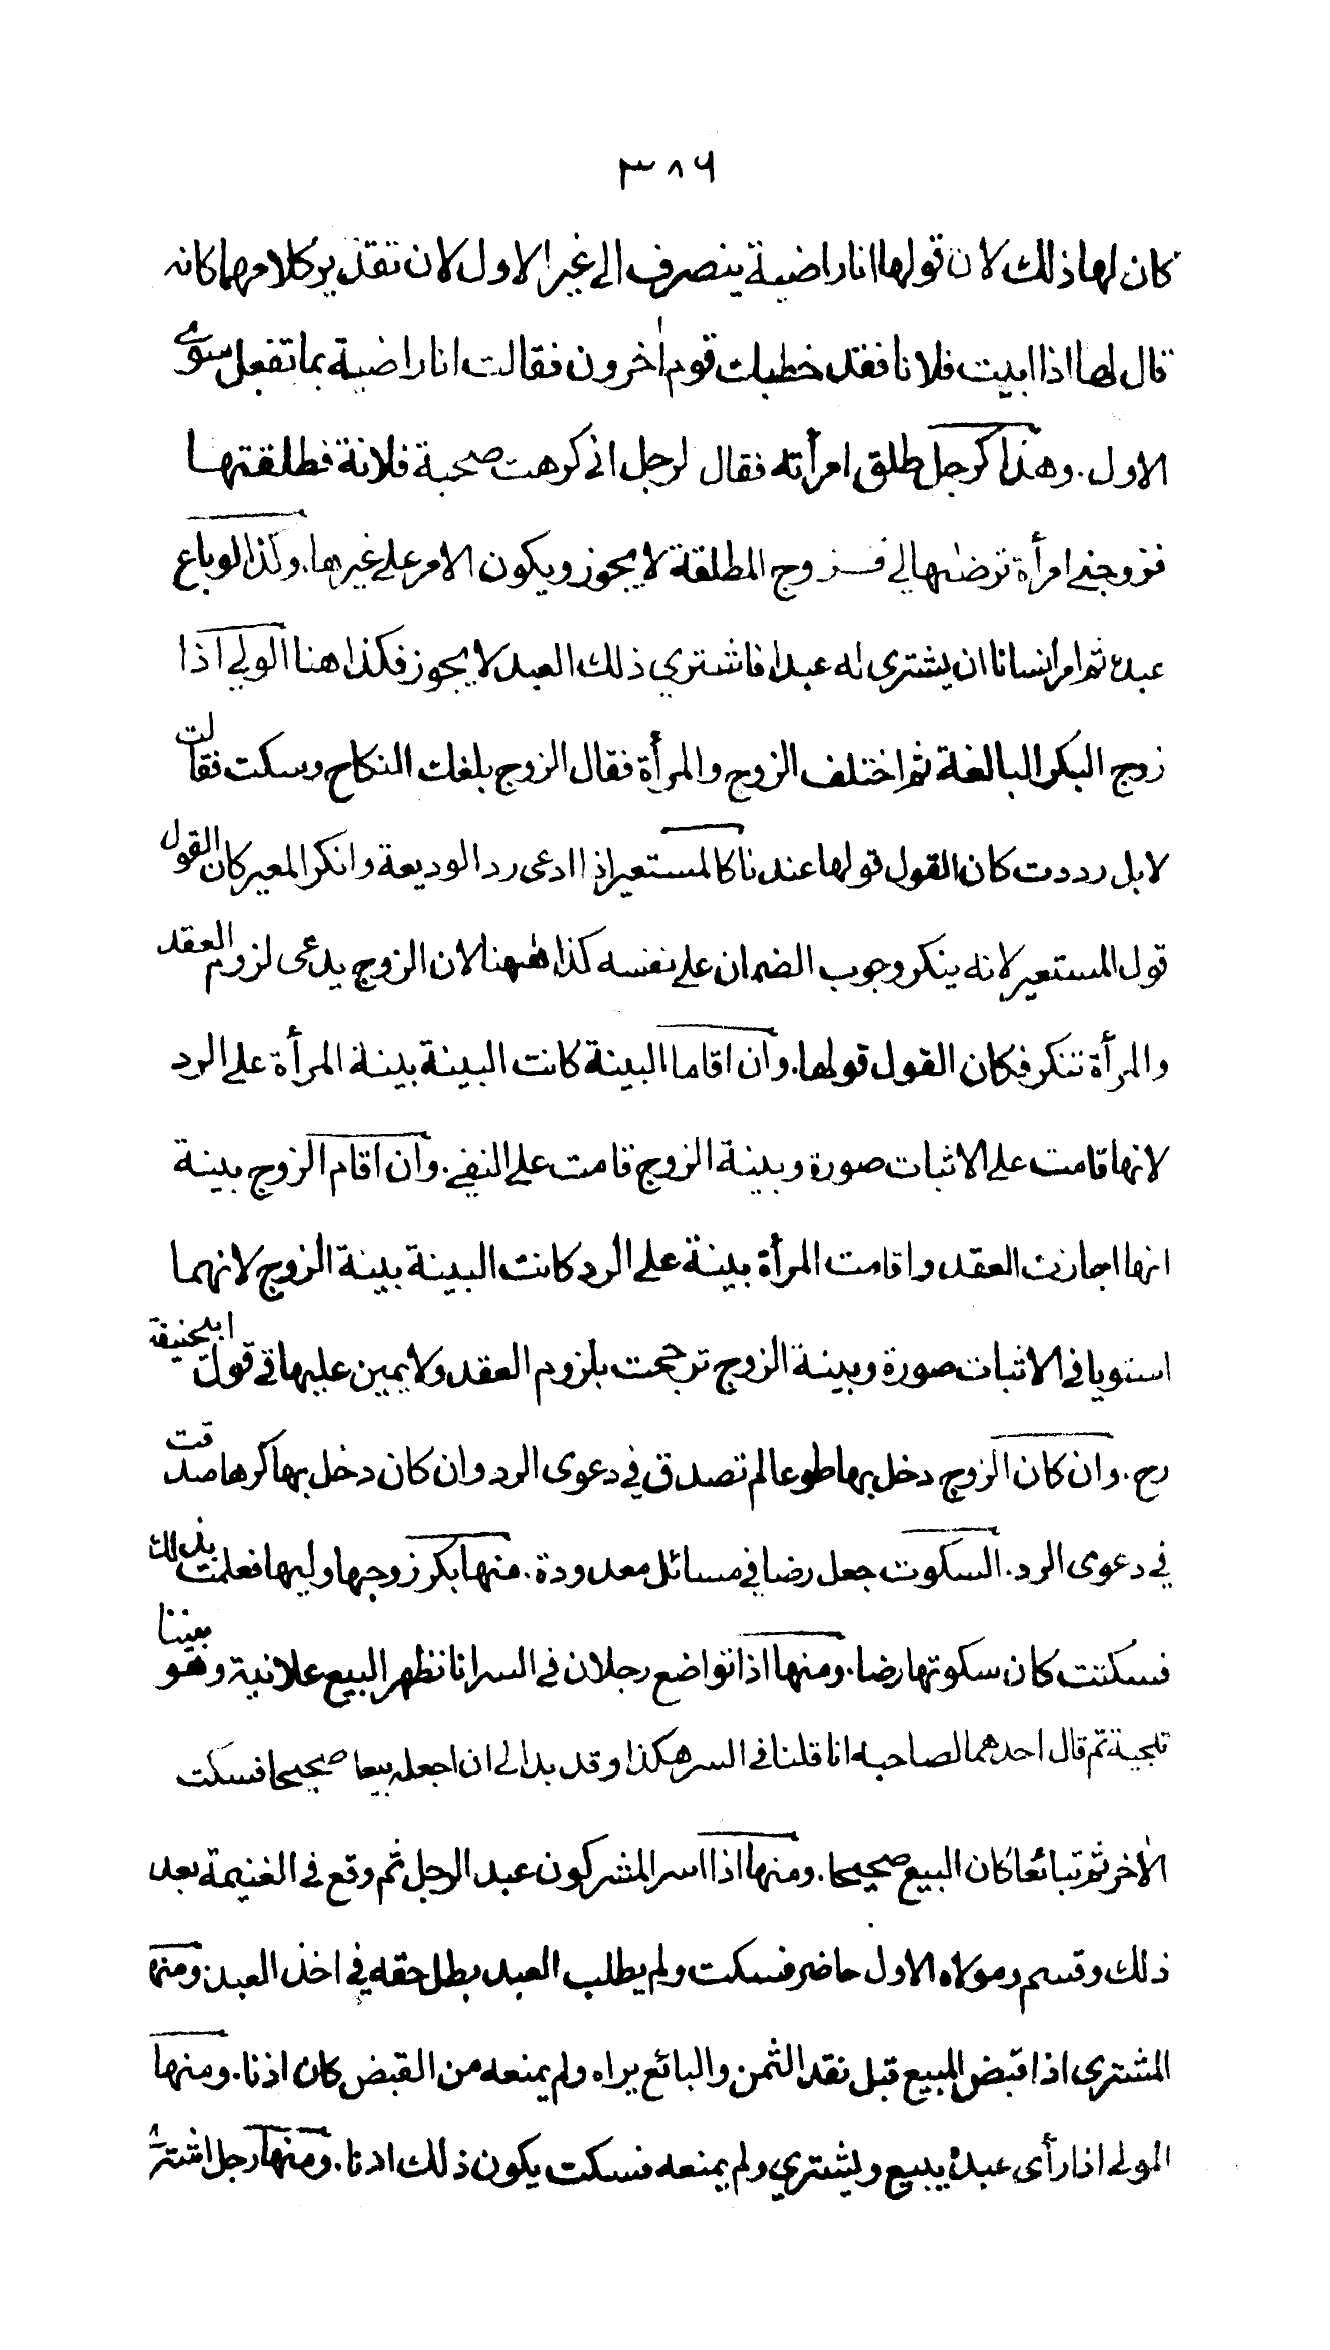 ٣٨٦
كان لها ذلك لان قولها انا راضية ينصرف الى غير الاول لان تقدير كلامهما كانه
قال لها اذا ابيت فلانا فقد خطبك قوم اٰخرون فقالت انا راضية بما تفعل سوى
الاول. وهذا كرجل طلق امرأته فقال لرجل انى كرهت صحبة فلانة فطلقتها
فزوجنى امرأة ترضٰيها لى فزوج المطلقة لا يجوز ويكون الامر على غيرها. وكذا لو باع
عبدہ ثم امر انسانا ان يشترى له عبدا فاشترى ذلك العبد لا يجوز فكذا هنا الولى اذا
زوج البكر البالغة ثم اختلف الزوج والمرأة فقال الزوج بلغك النكاح وسكت فقالت
لا بل رددت كان القول قولها عندنا كالمستعير اذا ادعى رد الوديعة وانكر المعير كان القول
قول المستعير لانه ينكر وجوب الضمان على نفسه كذا هٰهنا لان الزوج يدعى لزوم العقد
والمرأة تنكر فكان القول قولها. وان اقاما البينة كانت البينة بينة المرأة على الرد
لانها قامت على الاثبات صورة وبينة الزوج قامت على النفى. وان اقام الزوج بينة
انها اجازت العقد واقامت المرأة بينة على الرد كانت البينة بينة الزوج لانهما
استويا فى الاثبات صورة وبينة الزوج ترجحت بلزوم العقد ولا يمين عليها فى قول ابيحنيفة
رح. وان كان الزوج دخل بها طوعا لم تصدق فى دعوى الرد وان كان دخل بها كرها صدقت
فى دعوى الرد. السكوت جعل رضا فى مسائل معدودة. منها بكر زوجها وليها فعلمت بذلك
فسكتت كان سكوتها رضا. ومنها اذا تواضع رجلان فى السر انا نظهر البيع علانية وهو بيننا
تلجية ثم قال احدهما لصاحبه انا قلنا فى السر هكذا وقد بدا لى ان اجعله بيعا صحيحا فسكت
الاٰخر ثم تبائعا كان البيع صحيحا. ومنها اذا اسر المشركون عبد الرجل ثم وقع فى الغنيمة بعد
ذلك وقسم ومولاه الاول حاضر فسكت ولم يطلب العبد بطل حقه فى اخذ العبد ومنها
المشترى اذا قبض المبيع قبل نقد الثمن والبائع يراه ولم يمنعه من القبض كان اذنا. ومنها
المولى اذا رأى عبدہ يبيع ويشترى ولم يمنعه فسكت يكون ذلك اذنا. ومنها رجل اشترى